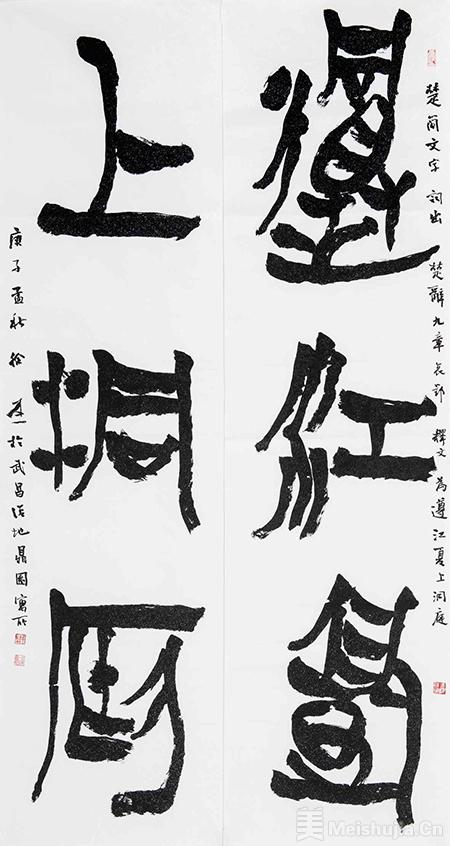 楚简文字 詞出 楚辭九章哀郢 釋文 為遵江夏上洞庭
遵江夏
上洞庭
庚子孟秋徐於武昌地鼎園寓所
美 Meishujia.Cn